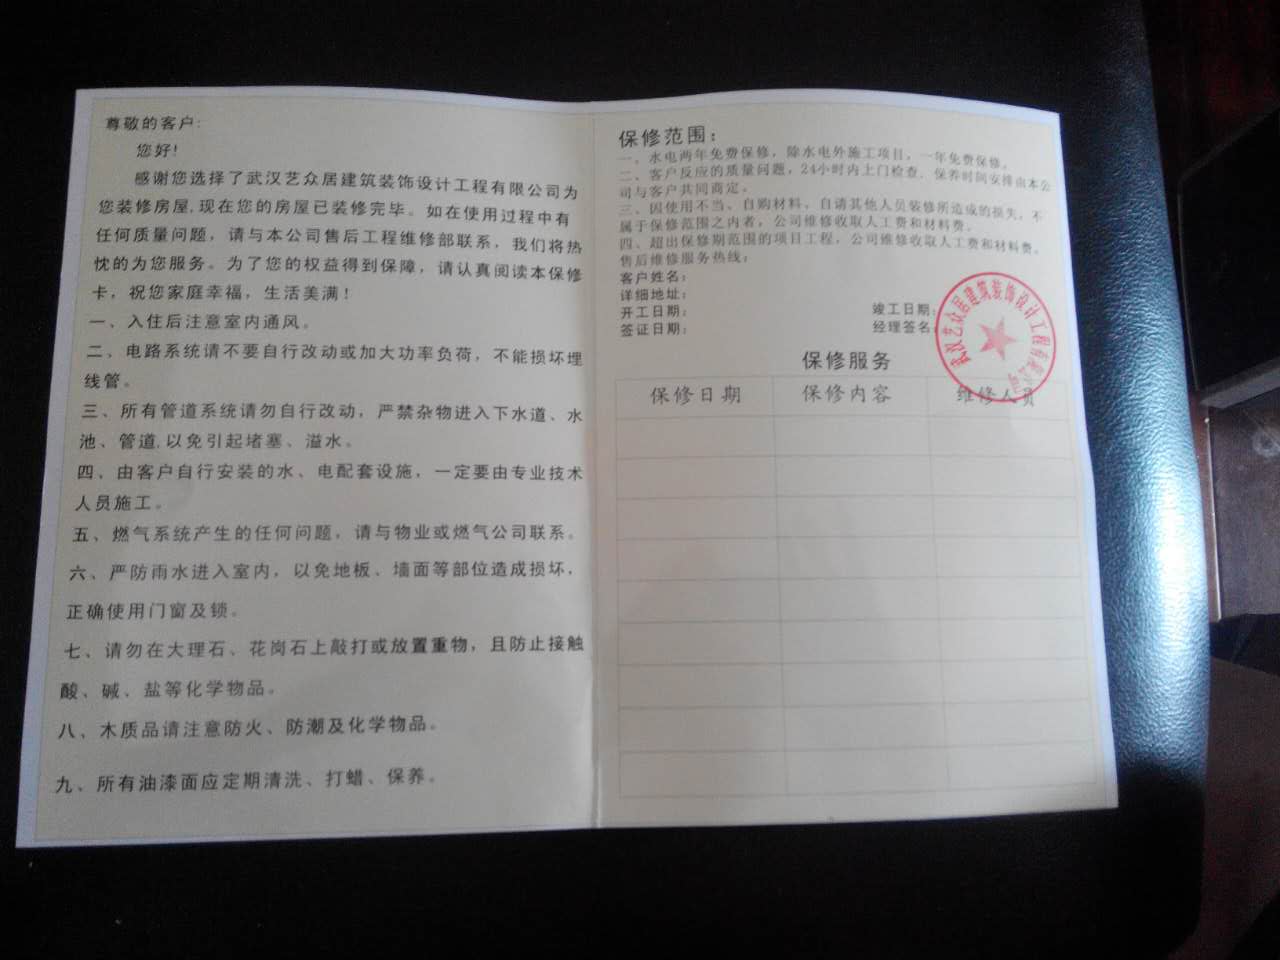 尊敬的客户:
您好!
感谢您选择了武汉艺众居建筑装饰设计工程有限公司为
您装修房屋,现在您的房屋已装修完毕。如在使用过程中有
任何质量问题，请与本公司售后工程维修部联系，我们将热
忱的为您服务。为了您的权益得到保障，请认真阅读本保修
卡，祝您家庭幸福，生活美满!
一、入住后注意室内通风。
二、电路系统请不要自行改动或加大功率负荷，不能损坏埋
线管。
三、所有管道系统请勿自行改动，严禁杂物进入下水道、水
池、管道,以免引起堵塞、溢水。
四、由客户自行安装的水、电配套设施，一定要由专业技术
人员施工。
五、燃气系统产生的任何问题，请与物业或燃气公司联系。
六、严防雨水进入室内，以免地板、墙面等部位造成损坏，
正确使用门窗及锁。
七、请勿在大理石、花岗石上敲打或放置重物，且防止接触
酸、碱、盐等化学物品。
八、木质品请注意防火、防潮及化学物品。
九、所有油漆面应定期清洗、打蜡、保养。
保修范围:
一、水电两年免费保修，除水电外施工项目，一年免费保修。
二、客户反应的质量问题，24小时内上门检查、保养时间安排由本公
司与客户共同商定。
三、因使用不当、自购材料、自请其他人员装修所造成的损失，不
属于保修范围之内者，公司维修收取人工费和材料费。
四、超出保修期范围的项目工程，公司维修收取人工费和材料费。
售后维修服务热线:
客户姓名:
详细地址:
开工日期: 竣工日期:
签证日期: 经理签名:
武汉艺众居建筑装饰设计工程有限公司
保修服务
保修日期 保修内容 维修人员